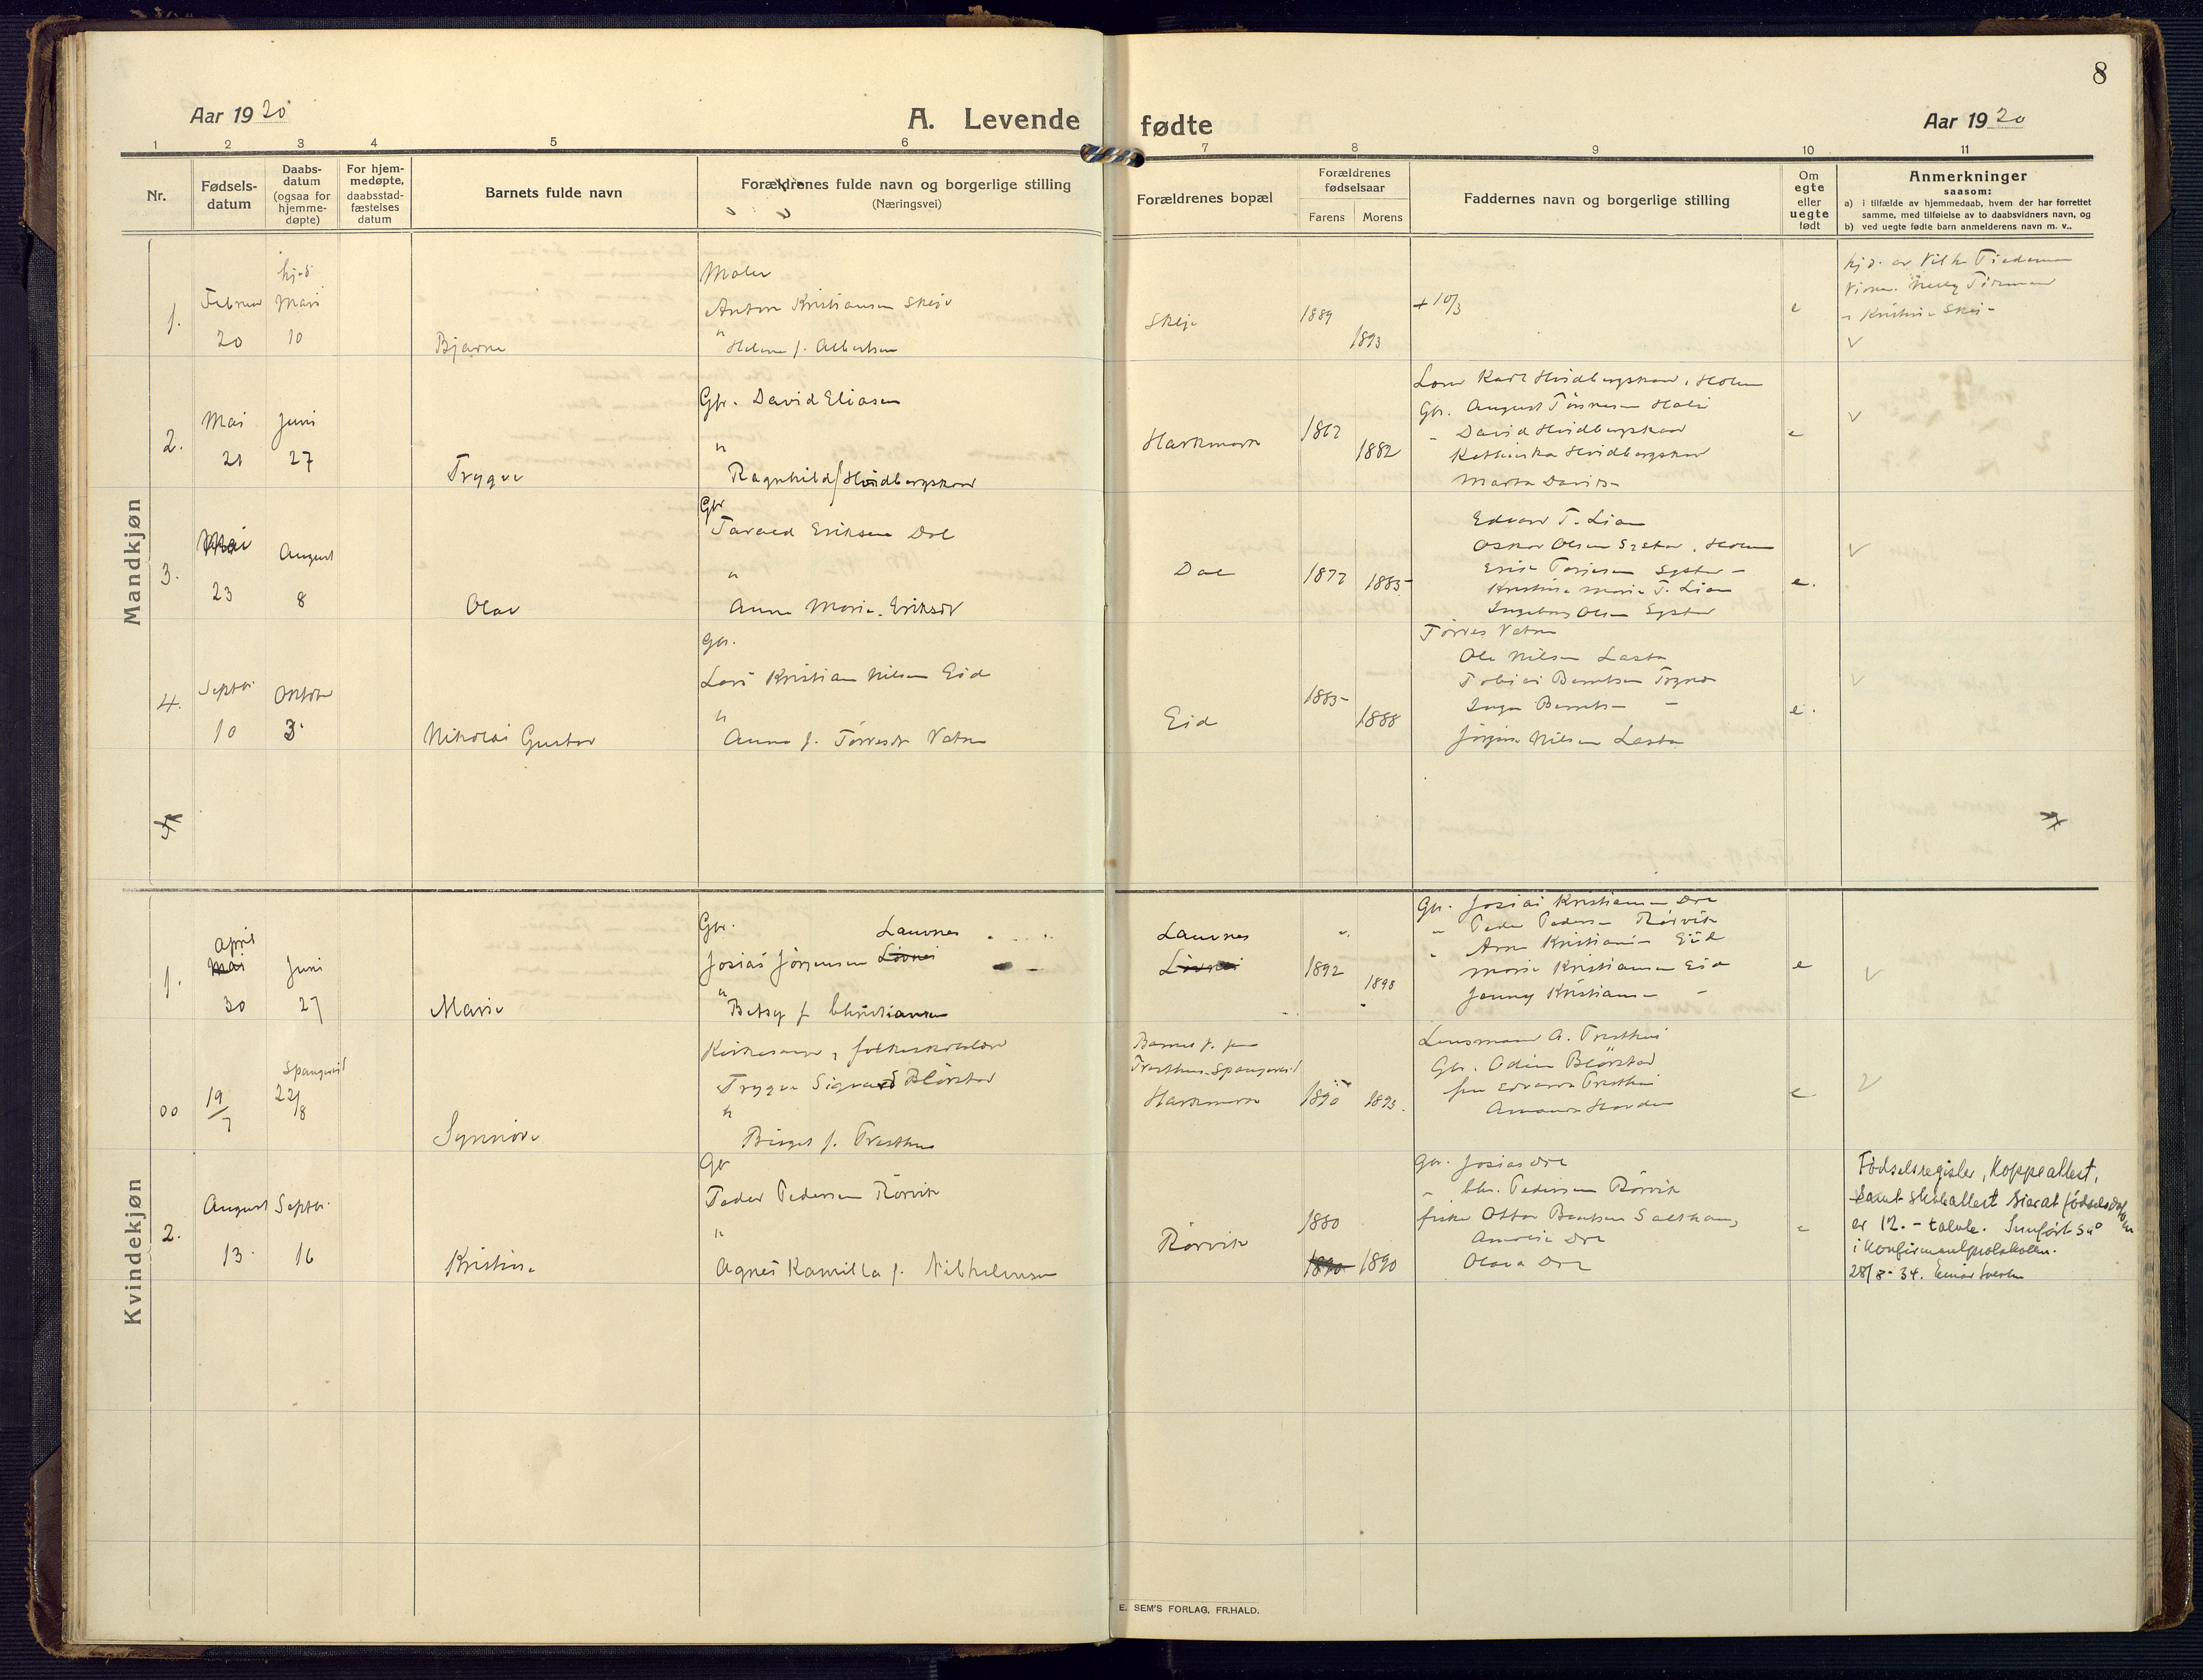 8
Aar 1920
A. Levende fødte
Aar 1920
1 2 3 4 5 6 7 8 9 10 11
Nr.
Fødsels-
datum
Daabs-
datum
(ogsaa for
hjemme-
døpte)
For hjem-
medøpte,
daabsstad-
fæstelses
datum
Barnets fulde navn
Forældrenes fulde navn og borgerlige stilling
(Næringsvei)
Forældrenes bopæl
Forældrenes
fødselsaar
Farens Morens
Faddernes navn og borgerlige stilling
Om
egte
eller
uegte
født
Anmerkninger
saasom:
a) i tilfælde av hjemmedaab, hvem der har forrettet
samme, med tilføielse av to daabsvidners navn, og
b) ved uegte fødte barn anmelderens navn m. v..
Mandkjøn
1.
Februar
20
hjd.
Mars
10
Bjarne
Maler
Anton Kristiansen Skeie
"
Helene f. Albertsen
Skeje
1889
1893
+ 10/3
e
hjd. av Vilh. Tiedeman
- Kristine Skei -
2.
Mai
21
Juni
27
Trygve
Gbr. David Eliasen
"
Ragnhild f. Hvidbergskaar
Harkmark
1862
1882
Karl Hvidbergskaar, Holum
Gbr. August Tørresen
- David Hvidbergskaar
Kathinka Hvidbergskaar
Marta Davids-
e
3.
Mai
23
August
8
Olav
Gbr
Tarald Eriksen Dal
"
Anna Marie Eriksdt
Dal
1877
1885
Edvard T. Lian
Oskar Olsen Egstar, Holum
Erik Torjesen
Kristine Marie T. Lian
Ingeborg Olsen
e.
4.
Septbr.
10
Oktober
3.
Nikolai Gustav
Gbr.
Lars Kristian Nilsen Eid
"
Anna f. Tørresdt Vatne
Eid
1885
1888
Tørres Vatne
Ole Nilsen Lasta
Tobias Berntsen
Inga Bernts- -
Jørgine Nilsen Lasta
e.
Kvindekjøn
1.
April
Mai
30
Juni
27
Marie
Gbr. Lauvnes
Josias Jørgensen Lövnes
"
Betsy f. Christiansen
Lauvnes
1892
1898
Gbr. Josias Kristiansen Dre
" Peder Pedersen Rörvik
" Arne Kristiansen Eid
Marie Kristiansen Eid
Jenny Kristiansen -
e
00
19/7
Spangereid
22/8
Synnöve
Kirkesanger, folkeskolelærer
Trygve Sigvard Blörstad
"
Birget f. Presthus
Spangereid
Harkmark
1890
1893.
Lensmann A. Presthus
Gbr. Odin Blörstad
fru Edvarda Presthus
e
2.
August
13.
Septbr.
16
Kristine
Gbr
Peder Pedersen Rörvik
"
Agnes Kamilla f. Vilhelmsen
Rörvik
1880
1890 1890
Gbr. Josias Dre
- Chr. Pedersen Rörvik
fisker Otto Berntsen
Olava Dre
e
Födselsregister, Koppeattest,
samt skoleattest sier at födselsdatoen
er 12. - tolvte. Innfört så
i Konfirmantprotokollen.
28/8-34.
E. SEM'S FORLAG, FR.HALD.